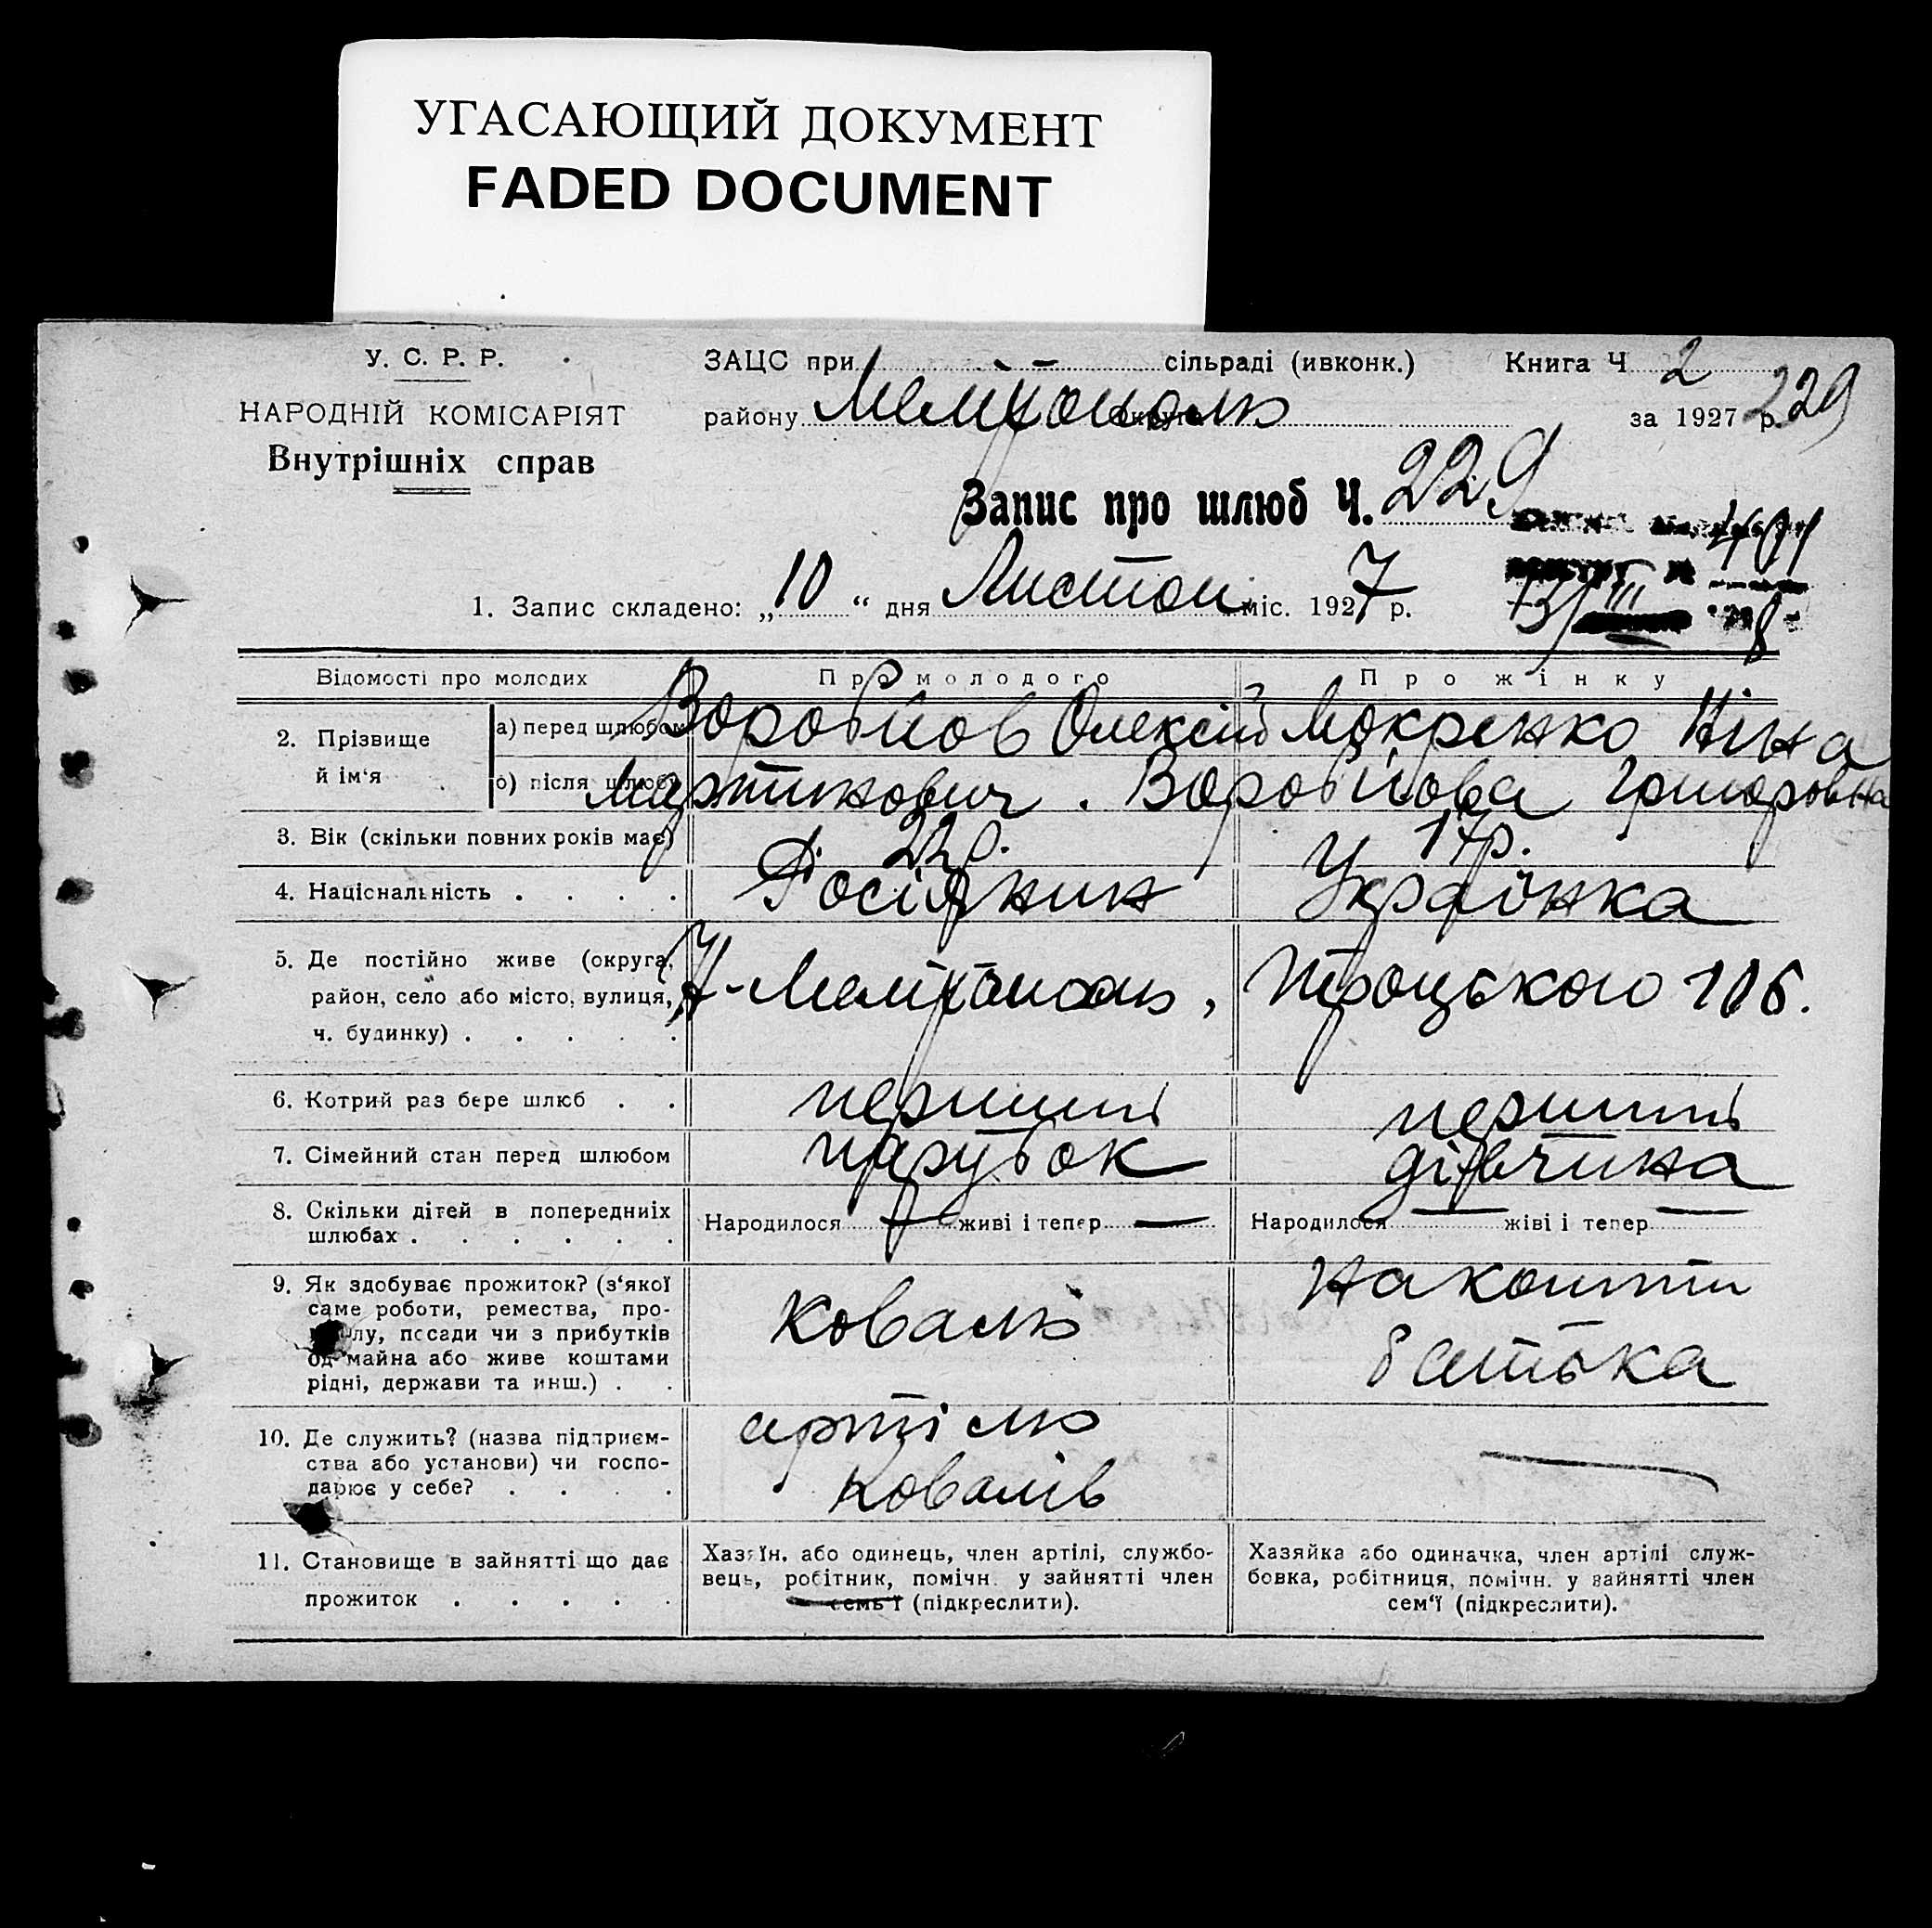 УГАСАЮЩИЙ ДОКУМЕНТ
FADED DOCUMENT
У. С. Р. Р.
НАРОДНІЙ КОМІСАРІЯТ
Внутрішніх справ
ЗАЦС при сільраді (ивконк.)
району Мелітополь
Книга Ч 2
за 1927 р. 229
Запис про шлюб Ч. 229
1. Запис складено: „10“ дня Листоп міс. 1927 р.
Відомості про молодих
Про молодого
Про жінку
2. Прізвище й ім'я
а) перед шлюбом
Воробйов Олексій
Мокренко Ніна
б) після шлюбу
Мартинович. Воробйова Григоровна
3. Вік (скільки повних років має)
22 р.
17 р.
4. Націснальність . . . .
Росіянин
Українка
5. Де постійно живе (округа,
район, село або місто, вулиця,
ч. будинку) . . . . .
Мелітополь, Троцького 106.
6. Котрий раз бере шлюб . .
перший
перший
7. Сімейний стан перед шлюбом
парубок
дівчина
8. Скільки дітей в попередниіх
шлюбах . . . . . .
Народилося — живі і тепер —
Народилося — жіві і тепер —
9. Як здобуває прожиток? (з'якої
саме роботи, ремества, про-
лу, посади чи з прибутків
од майна або живе коштами
рідні, держави та инш.) . .
Коваль
На кошти
батька
10. Де служить? (назва підприєм-
ства або установи) чи госпо-
дарює у себе? . . . .
артіль
Ковалів
—
11. Становище в зайнятті що дає
прожиток . . . . .
Хазяїн, або одинець, член артілі, службо-
вець, робітник, помічн. у зайнятті член
семь'ї (підкреслити).
Хазяйка або одиначка, член артілі служ-
бовка, робітниця, помічн. у зайнятті член
сем'ї (підкреслити).